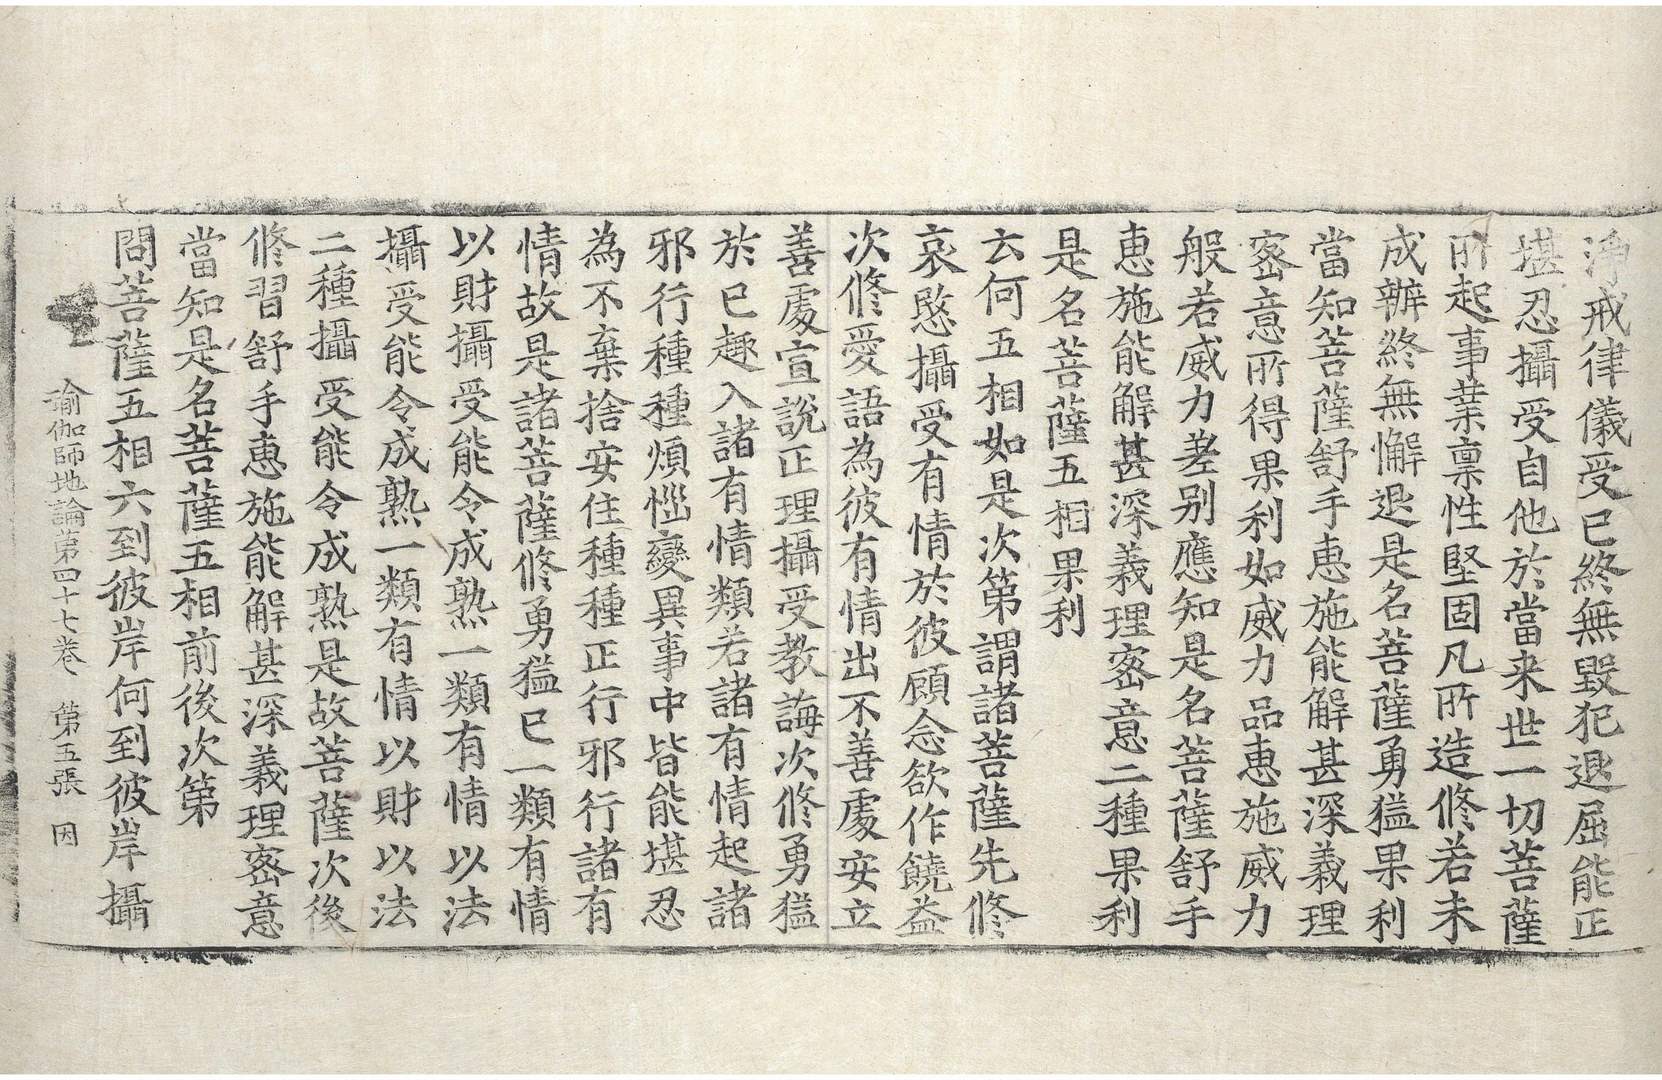 淨戒律儀受已終無毀犯退屈能正
堪忍攝受自他於當来世一切菩薩
所起事業禀性堅固凡所造修若未
成辦終無懈退是名菩薩勇猛果利
當知菩薩舒手惠施能解甚深義理
密意所得果利如威力品惠施威力
般若威力差别應知是名菩薩舒手
惠施能解甚深義理密意二種果利
是名菩薩五相果利
云何五相如是次第謂諸菩薩先修
哀愍攝受有情於彼顧念欲作饒益
次修愛語為彼有情出不善處安立
善處宣說正理攝受教誨次修勇猛
於已趣入諸有情類若諸有情起諸
邪行種種煩惱變異事中皆能堪忍
為不棄捨安住種種正行邪行諸有
情故是諸菩薩修勇猛已一類有情
以財攝受能令成熟一類有情以法
攝受能令成熟一類有情以財以法
二種攝受能令成熟是故菩薩次後
修習舒手惠施能解甚深義理密意
當知是名菩薩五相前後次第
問菩薩五相六到彼岸何到彼岸攝
瑜伽師地論第四十七卷 第五張 因